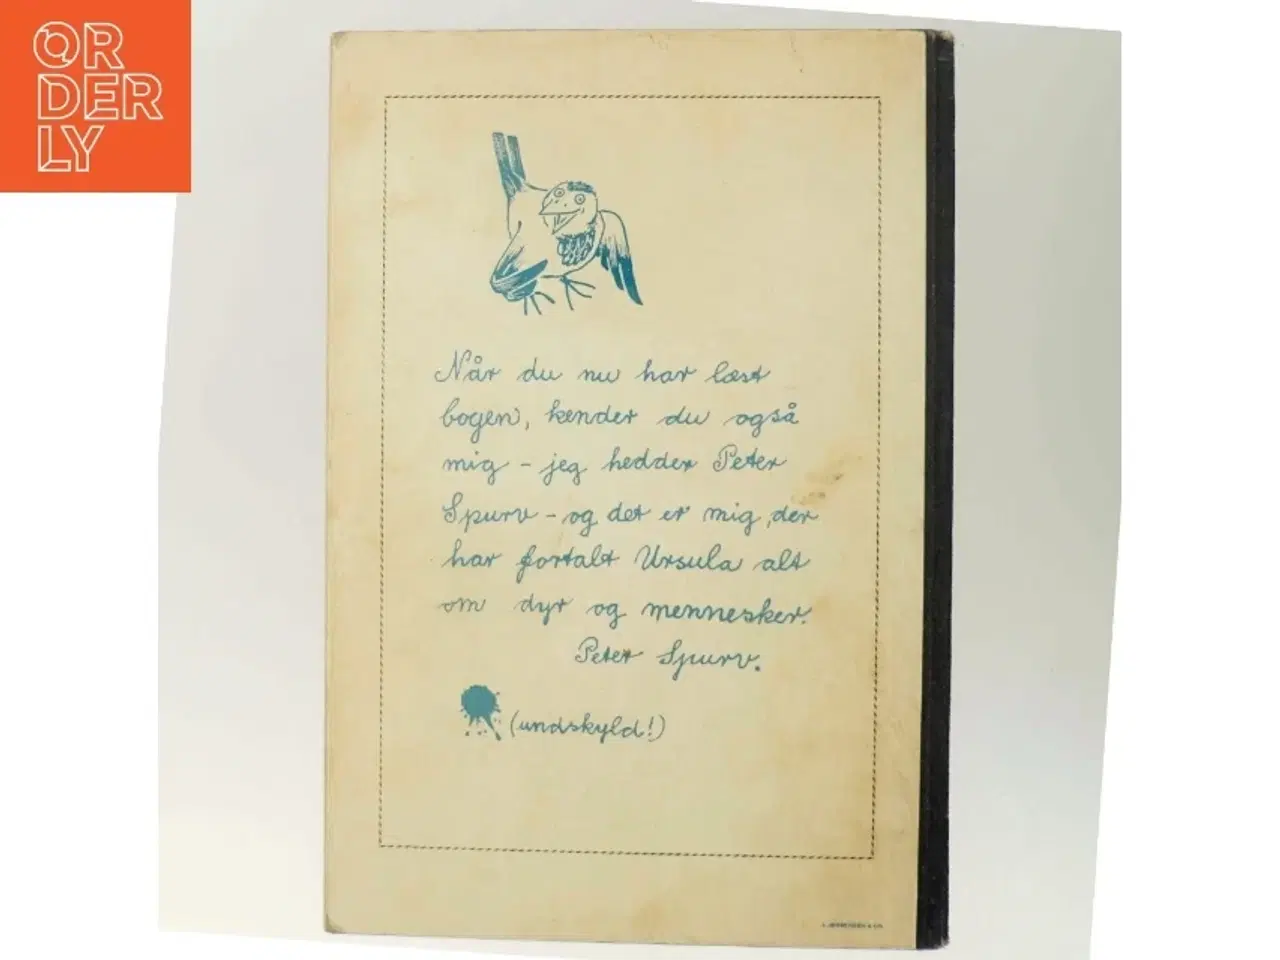 ORDERLY
Når du nu har læst
bogen, kender du også
mig - jeg hedder Peter
Spurv - og det er mig, der
har fortalt Ursula alt
om dyr og mennesker.
Peter Spurv.
(undskyld!)